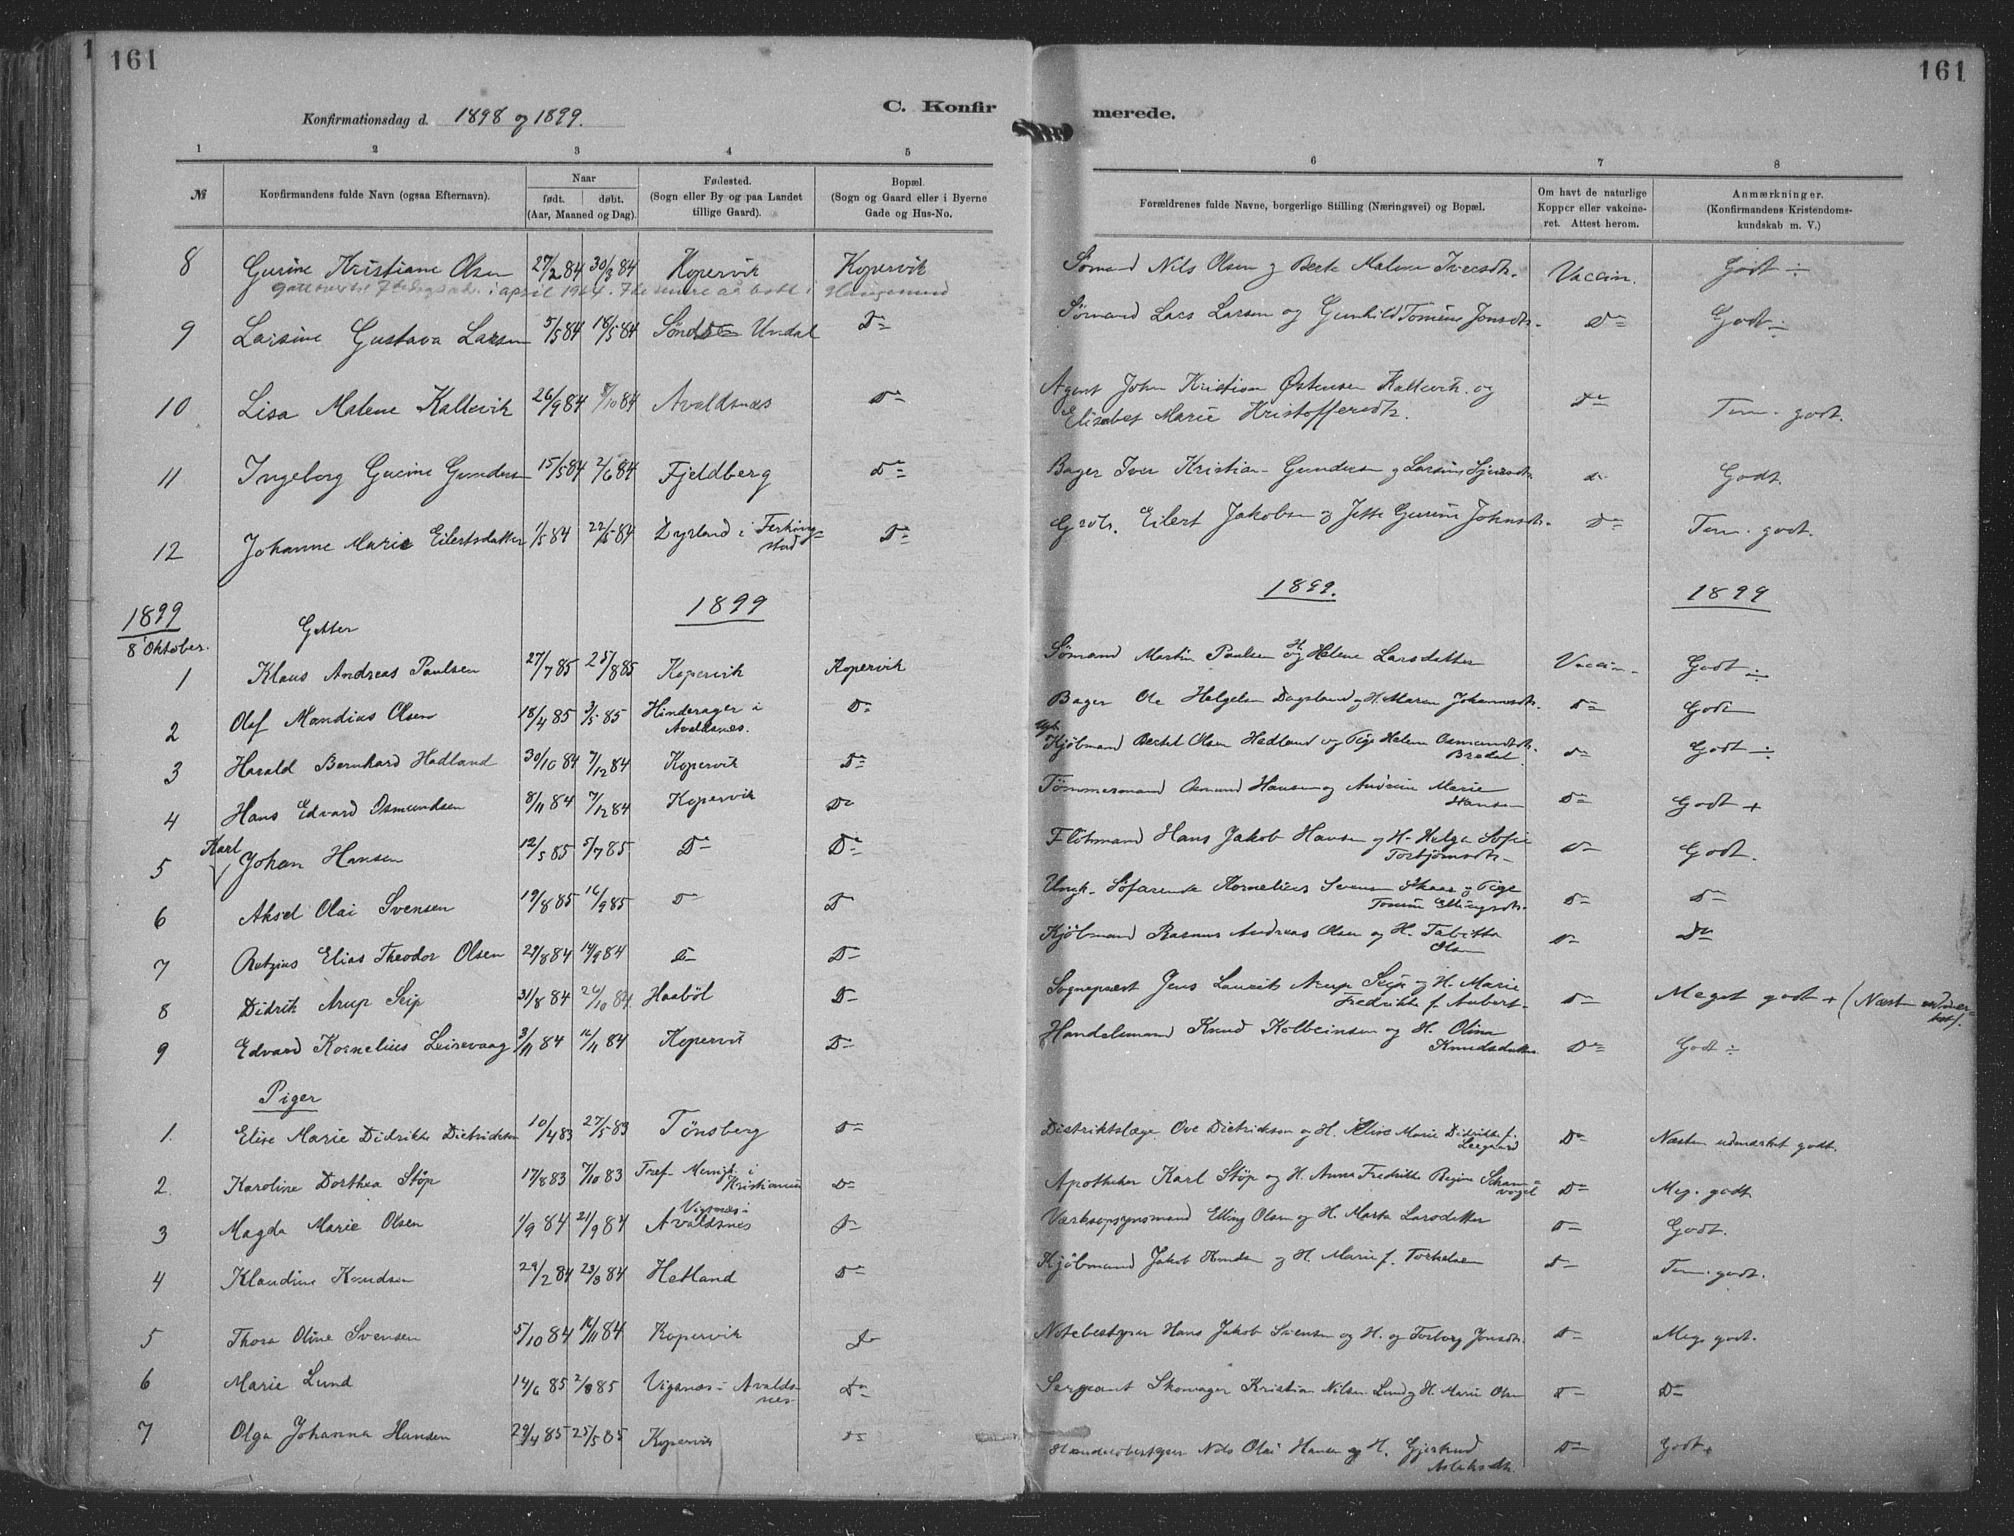 161
161
1
Konfirmationsdag d. 1898 og 1899.
C. Konfir
merede.
1 2 3 4 5
6 7 8
№
Konfirmandens fulde Navn (ogsaa Efternavn).
Naar
født. døbt.
(Aar, Maaned og Dag).
Fødested.
(Sogn eller By og paa Landet
tillige Gaard).
Bopæl.
(Sogn og Gaard eller i Byerne
Gade og Hus-No.
Forældrenes fulde Navne, borgerlige Stilling (Næringsvei) og Bopæl.
Om havt de naturlige
Kopper eller vakcine-
ret. Attest herom.
Anmærkninger.
(Konfirmandens Kristendoms-
kundskab m. V.)
8 Gurine Kristiane Olsen 27/2 84 30/3 84 Kopervik Kopervik Sømand Nils Olsen og Berte Malene Iversdtr. Vaccin. Godt ÷
i april 1964.
9 Larsine Gustava Larsen 5/5 84 18/5 84 Søndre Undal D= Sømand Lars Larsen og Gunhild Tomine Jonsdtr. D= Godt ÷
10 Lisa Malene Kallevik 26/9 84 /10 84 Avaldsnæs D= Agent John Kristian Østensen Kallevik og
Elisabet Marie Kristoffersdtr. D= Tem. godt.
11 Ingeborg Gurine Gundersen 15/5 84 2/6 84 Fjeldberg D= Bager Iver Kristian Gundersen og Larsine Sjursdtr. D= Godt.
12 Johanne Marie Eilertsdatter 1/5 84 22/5 84 Dyrland i Ferking=
stad D= Grdbr. Eilert Jakobsen og Jette Gurine Johnsdtr. D= Tem. godt.
1899 1899 1899. 1899
8 Oktober.
Gutter
1 Klaus Andreas Paulsen 27/7 85 25/8 85 Kopervik Kopervik Sømand Martin Paulsen og H. Helene Larsdatter Vaccin. Godt ÷
2 Olaf Mandius Olsen 18/4 85 3/5 85 Hinderager i
Avaldsnes. D= Bager Ole Helgesen Dagsland og H. Maren Johannesdtr. D= Godt
3 Harald Bernhard Hadland 30/10 84 7/12 84 Kopervik D= Ugk.
Kjøbmand Bertel Olsen Hadland og Pige Helene Osmundsdtr.
Bredal. D= Godt ÷
4 Hans Edvard Osmundsen 8/11 84 7/12 84 Kopervik D= Tømmermand Osmund Hansen og Andrine Marie
Hansen D= Godt +
5 Karl
Johan Hansen 12/5 85 5/7 85 D= D= Flötmand Hans Jakob Hansen og H. Helga Sofie
Torbjørnsdtr. D= Godt.
6 Aksel Olai Svensen 19/8 85 16/9 85 D= D= Ungk. Søfarende Kornelius Svensen Skaar og Pige
Tomine Ellingsdtr. D= D=
7 Retzius Elias Theodor Olsen 29/8 84 14/9 84 D= D= Kjøbmand Rasmus Andreas Olsen og H. Tabitta
Olsen D= D=
8 Didrik Arup Seip 31/8 84 26/10 84 Haabøl D= Sogneprest Jens Laurits Arup Seip og H. Marie
Fredrikke f. Aubert D= Meget godt + (Næsten udmær=
ket).
9 Edvard Kornelius Leirevaag 3/11 84 16/11 84 Kopervik D= Handelsmand Knud Kolbeinsen og H. Olina
Knudsdatter D= Godt ÷
Piger
1. Elise Marie Didrikke Dietrichson 10/4 83 27/5 83 Tønsberg D= Distriktslæge Ove Dietrichson og H. Elise Marie Didrikke f.
Leegaard D= Næsten udmærket godt.
2. Karoline Dorthea Støp 17/8 83 7/10 83 Tref. Menigh. i
Kristiania D= Apotheker Karl Støp og H. Anna Fredrikke Regine Skam=
vogel D= Meg. godt
3 Magda Marie Olsen 1/9 84 21/9 84 Vigsnæs i
Avaldsnes D= Værksopsynsmand Elling Olsen og H. Marta Larsdatter D= Godt.
4 Klaudine Knudsen 29/2 84 23/3 84 Hetland D= Kjøbmand Jakob Knudsen og H. Marie f. Torkelsen D= Tem. godt.
5 Thora Oline Svensen 5/10 84 16/11 84 Kopervik D= Notebestyrer Hans Jakob Svensen og H. og Torborg Jonsdtr. D= Meg. godt.
6 Marie Lund 14/6 85 2/8 85 Vigsnæs i Avalds-
nes D= Sergeant Skomager Kristian Nilsen Lund og H. Marie Olsen D= D=
7 Olga Johanna Hansen 29/4 85 25/5 85 Kopervik D= Handelsbestyrer Nils Olai Hansen og H. Gjertrud
Aslaksdtr. D= Godt +